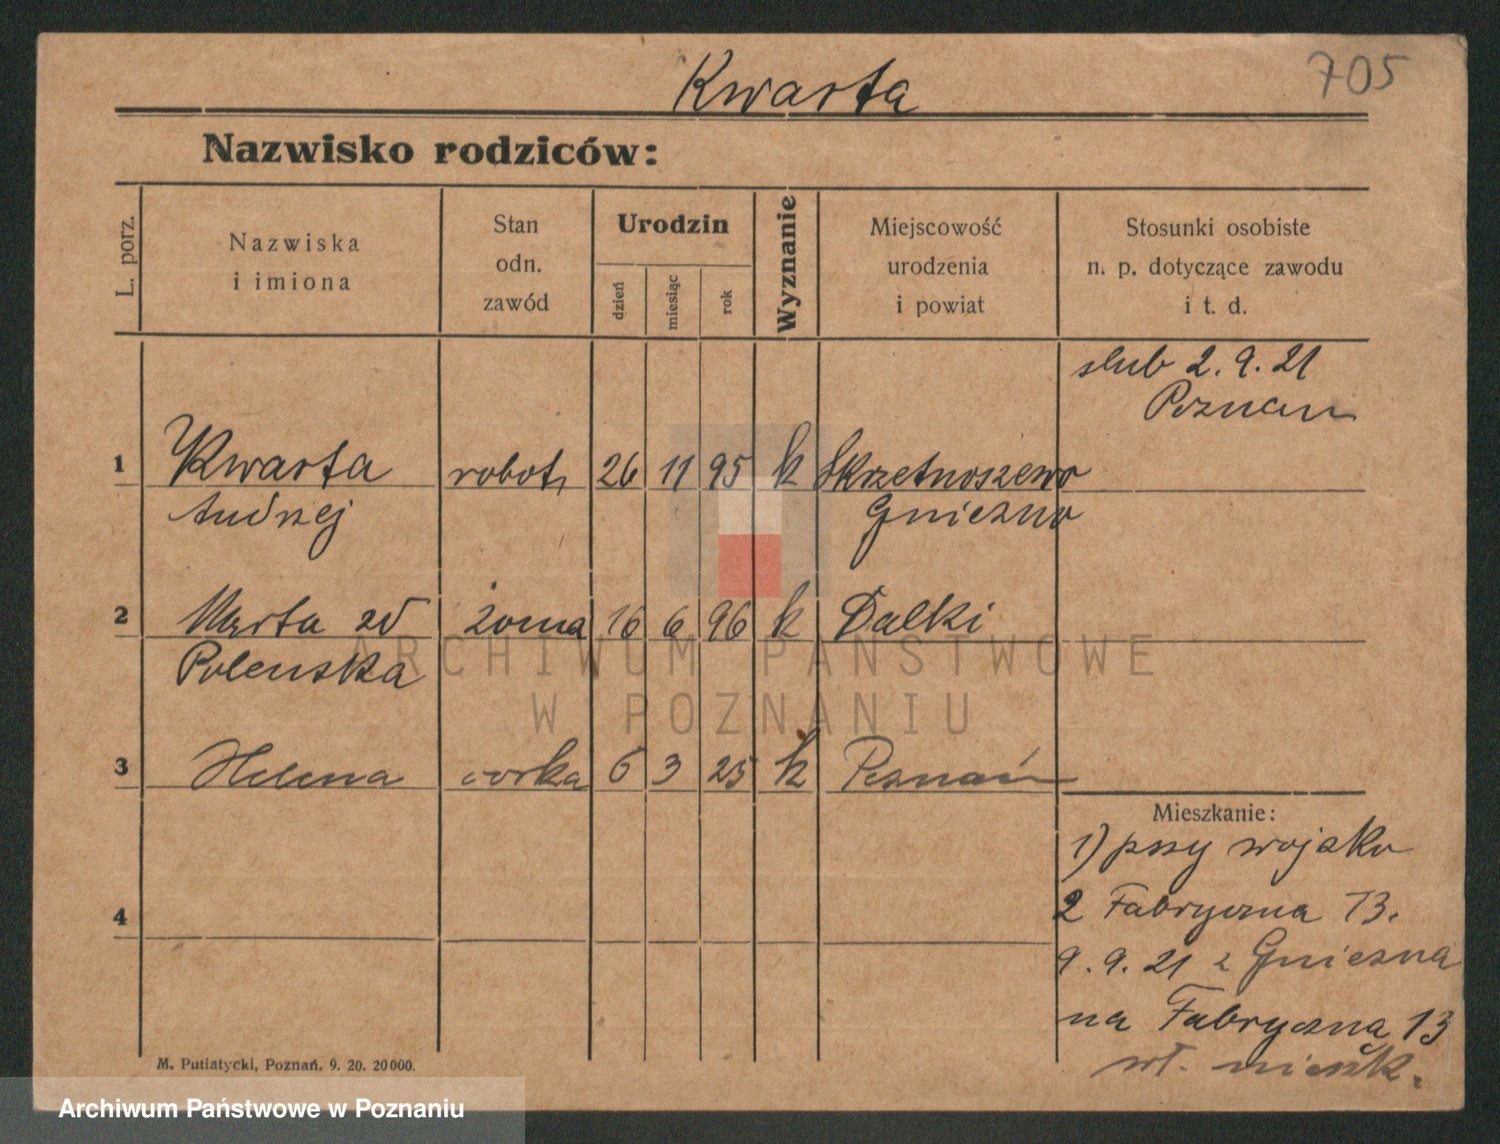 Kwarta
705
Nazwisko rodziców:
L. porz.
Nazwiska
i imiona
Stan
odn.
zawód
Urodzin
dzień
miesiąc
rok
Wyznanie
Miejscowość
urodzenia
i powiat
Stosunki osobiste
n. p. dotyczące zawodu
i t. d.
slub 2. 9. 21
Poznan
1 Kwarta robotn 26 11 95 k Skrzetuszewo
Andrzej Gniezno
2 Marta zd żona 16 6 96 k Dalki
Polenska
3 Helena corka 6 3 25 k Poznań
Mieszkanie:
1) przy wojsku
2 Fabryczna 13.
4
9. 9. 21 z Gniezna
na Fabryczna 13
wł. mieszk.
M. Putiatycki, Poznań. 9. 20. 20000.
ARCHIWUM PAŃSTWOWE
W POZNANIU
Archiwum Państwowe w Poznaniu